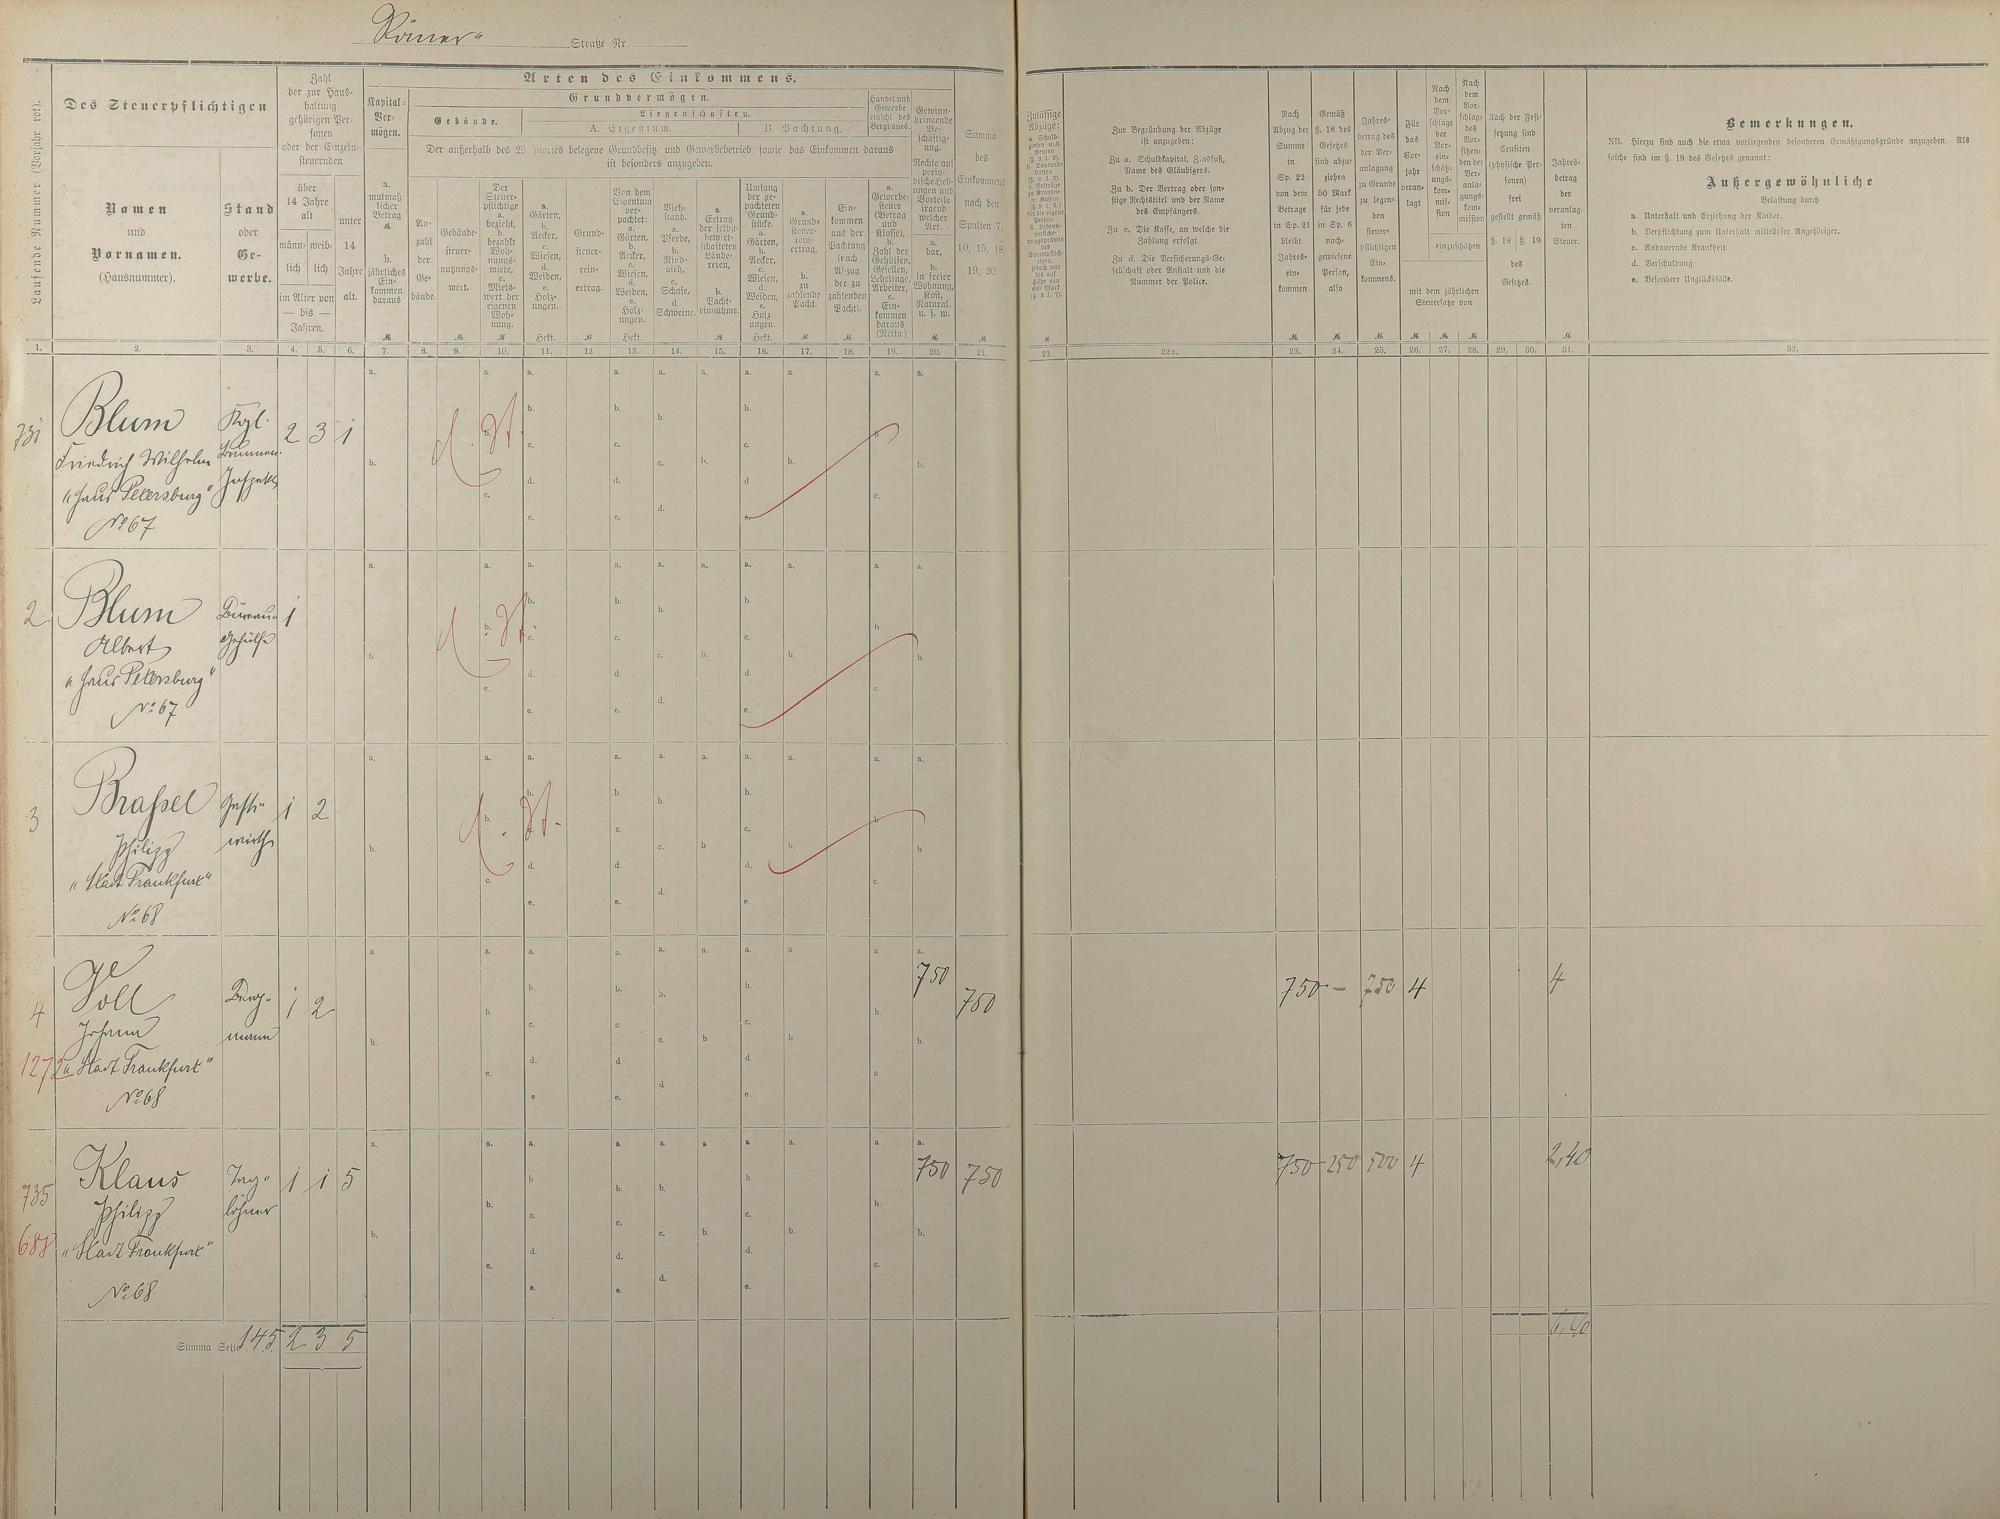 Römer"
Straße Nr.
Laufende Nummer (Vorjahr rot).
Des Steuerpflichtigen
Namen
und
Vornamen.
(Hausnummer).
Stand
oder
Ge-
werbe.
Zahl
der zur Haus-
haltung
gehörigen Per-
sonen
oder der Einzeln-
steuernden
über
14 Jahre
alt
männ-
lich
weib-
lich
im Alter von
— bis —
Jahren.
unter
14
Jahre
alt.
Arten des Einkommens.
Kapital-
Ver-
mögen.
a.
mutmaß-
licher
Betrag
ℳ
b.
jährliches
Ein-
kommen
daraus
ℳ
Grundvermögen.
Gebäude.
Liegenschaften.
A. Eigentum.
B. Pachtung.
Der außerhalb des Wohnortes belegene Grundbesitz und Gewerbebetrieb sowie das Einkommen daraus
ist besonders anzugeben.
An-
zahl
der
Ge-
bäude.
Gebäude-
steuer-
nutzungs-
wert.
ℳ
Der
Steuer-
pflichtige
a.
bezieht,
b.
bezahlt
Woh-
nungs-
miete,
c.
Miets-
wert der
eigenen
Woh-
nung.
ℳ
a.
Gärten,
b.
Aecker,
c.
Wiesen,
d.
Weiden,
e.
Holz-
ungen.
Hekt.
Grund-
steuer-
rein-
ertrag.
ℳ
Von dem
Eigentum
ver-
pachtet:
a.
Gärten,
b.
Aecker,
c.
Wiesen,
d.
Weiden,
e.
Holz-
ungen.
Hekt.
Vieh-
stand.
a.
Pferde,
b.
Rind-
vieh,
c.
Schafe,
d.
Schweine.
a.
Ertrag
der selbst-
bewirt-
schafteten
Lände-
reien,
b.
Pacht-
einnahme.
ℳ
Umfang
der ge-
pachteten
Grund-
stücke.
a.
Gärten,
b.
Aecker,
c.
Wiesen,
d.
Weiden,
e.
Holz-
ungen.
Hekt.
a.
Grund-
steuer-
rein-
ertrag,
b.
zu
zahlende
Pacht.
ℳ
Ein-
kommen
aus der
Pachtung
(nach
Abzug
der zu
zahlenden
Pacht).
ℳ
Handel und
Gewerbe
einschl. des
Bergbaues.
a.
Gewerbe-
steuer
(Betrag
und
Klasse),
b.
Zahl der
Gehülfen,
Gesellen,
Lehrlinge,
Arbeiter,
c.
Ein-
kommen
daraus.
(Netto)
Gewinn-
bringende
Be-
schäftig-
ung.
Rechte auf
perio-
dische Heb-
ungen und
Vorteile
irgend
welcher
Art.
a.
bar,
b.
in freier
Wohnung,
Kost,
Natural.
u. s. w.
ℳ
Summa
des
Einkommens
nach den
Spalten 7,
10, 15, 18,
19, 20.
ℳ
Zulässige
Abzüge:
Zur Begründung der Abzüge
ist anzugeben:
Zu a. Schuldkapital, Zinsfuß,
Name des Gläubigers.
Zu b. Der Vertrag oder son-
stige Rechtstitel und der Name
des Empfängers.
Zu c. Die Kasse, an welche die
Zahlung erfolgt.
Zu d. Die Versicherungs-Ge-
sellschaft oder Anstalt und die
Nummer der Police.
Nach
Abzug der
Summe
in
Sp. 22
von dem
Betrage
in Sp. 21
bleibt
Jahres-
ein-
kommen
ℳ
Gemäß
§. 18 des
Gesetzes
sind abzu-
ziehen
50 Mark
für jede
in Sp. 6
nach-
gewiesene
Person,
also
ℳ
Jahres-
betrag des
der Ver-
anlagung
zu Grunde
zu legen-
den
steuer-
pflichtigen
Ein-
kommens.
ℳ
Für
das
Vor-
jahr
veran-
lagt
Nach
dem
Vor-
schlage
der
Vor-
ein-
schätz-
ungs-
kom-
mis-
sion
Nach
dem
Vor-
schlage
des
Vor-
sitzen-
den der
Ver-
anla-
gungs-
kom-
mission
einzuschätzen
mit dem jährlichen
Steuersatze von
ℳ ℳ ℳ
Nach der Fest-
setzung sind
Censiten
(physische Per-
sonen)
frei
gestellt gemäß
§. 18 §. 19
des
Gesetzes.
Jahres-
betrag
der
veranlag-
ten
Steuer.
ℳ
Bemerkungen.
NB. Hierzu sind auch die etwa vorliegenden besonderen Ermäßigungsgründe anzugeben. Als
solche sind im §. 19 des Gesetzes genannt:
Außergewöhnliche
Belastung durch
a. Unterhalt und Erziehung der Kinder.
b. Verpflichtung zum Unterhalt mittelloser Angehöriger.
c. Andauernde Krankheit
d. Verschuldung.
e. Besondere Unglücksfälle.
1. 2. 3. 4. 5. 6. 7. 8. 9. 10. 11. 12 13. 14. 15. 16. 17. 18. 19. 20. 21. 22 22a. 23. 24. 25. 26. 27. 28. 29. 30. 31. 32.
731 Blum Kgl. 2 3 1
Friedrich Wilhelm Brunnen-
"Haus Petersburg" Inspektor
No 67
2 Blum Büreau- 1
Albert Gehülfe
"Haus Petersburg"
No 67
3 Braßel Gast- 1 2
Philipp wirth
"Stadt Frankfurt"
No 68
4 Voll Berg- 1 2 750 750 750 – 750 4 4
Johann mann
1272 "Stadt Frankfurt"
No 68
735 Klaus Tag- 1 1 5 750 750 750 250 500 4 2,40
Philipp löhner
688 "Stadt Frankfurt"
No 68
Summa Seite 145 2 3 5 6,40